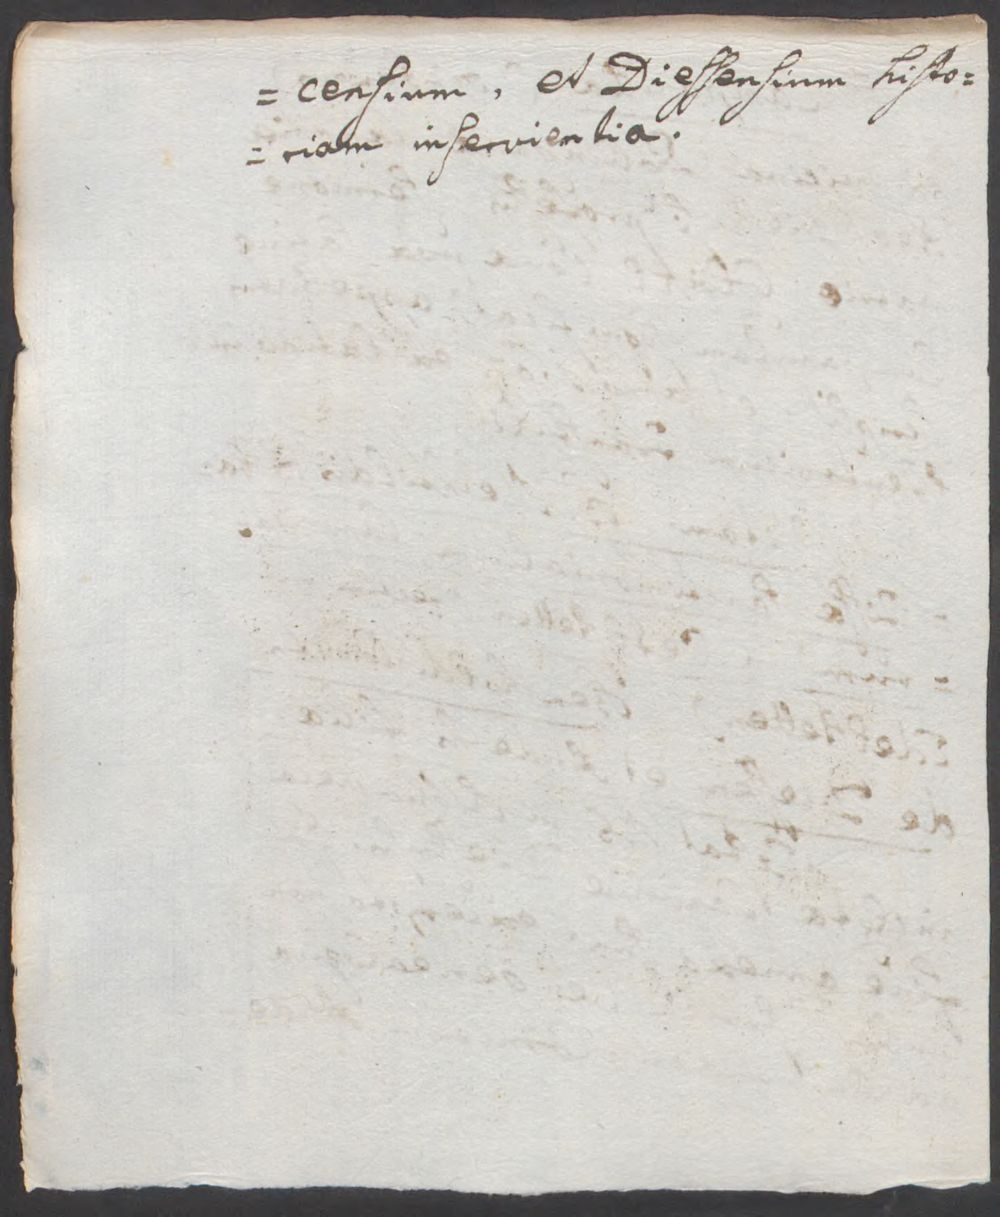 = censium, et Diessensium histo=
= riam inservientia.